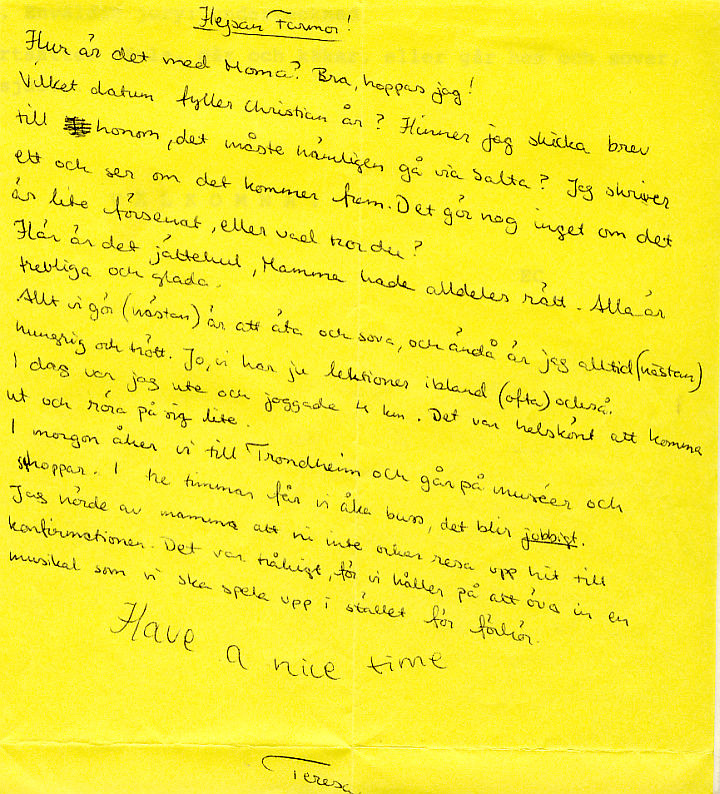 Hejsan Farmor!
Hur är det med Moma? Bra, hoppas jag!
Vilket datum fyller Christian år? Hinner jag skicka brev
till honom, det måste nämligen gå via Salta? Jag skriver
ett och ser om det kommer fram. Det gör nog inget om det
är lite försenat, eller vad tror du?
Här är det jättekul, Mamma hade alldeles rätt. Alla är
trevliga och glada.
Allt vi gör (nästan) är att äta och sova, och ändå är jag alltid (nästan)
hungrig och trött. Jo, vi har ju lektioner ibland (ofta) också.
I dag var jag ute och joggade 4 km. Det var helskönt att komma
ut och röra på sig lite.
I morgon åker vi till Trondheim och går på muséer och
shoppar. I tre timmar får vi åka buss, det blir jobbigt.
Jag hörde av mamma att ni inte orkar resa upp hit till
konfirmationen. Det var tråkigt, för vi håller på att öva in en
musikal som vi ska spela upp i stället för förhör.
Have a nice time
Teresa